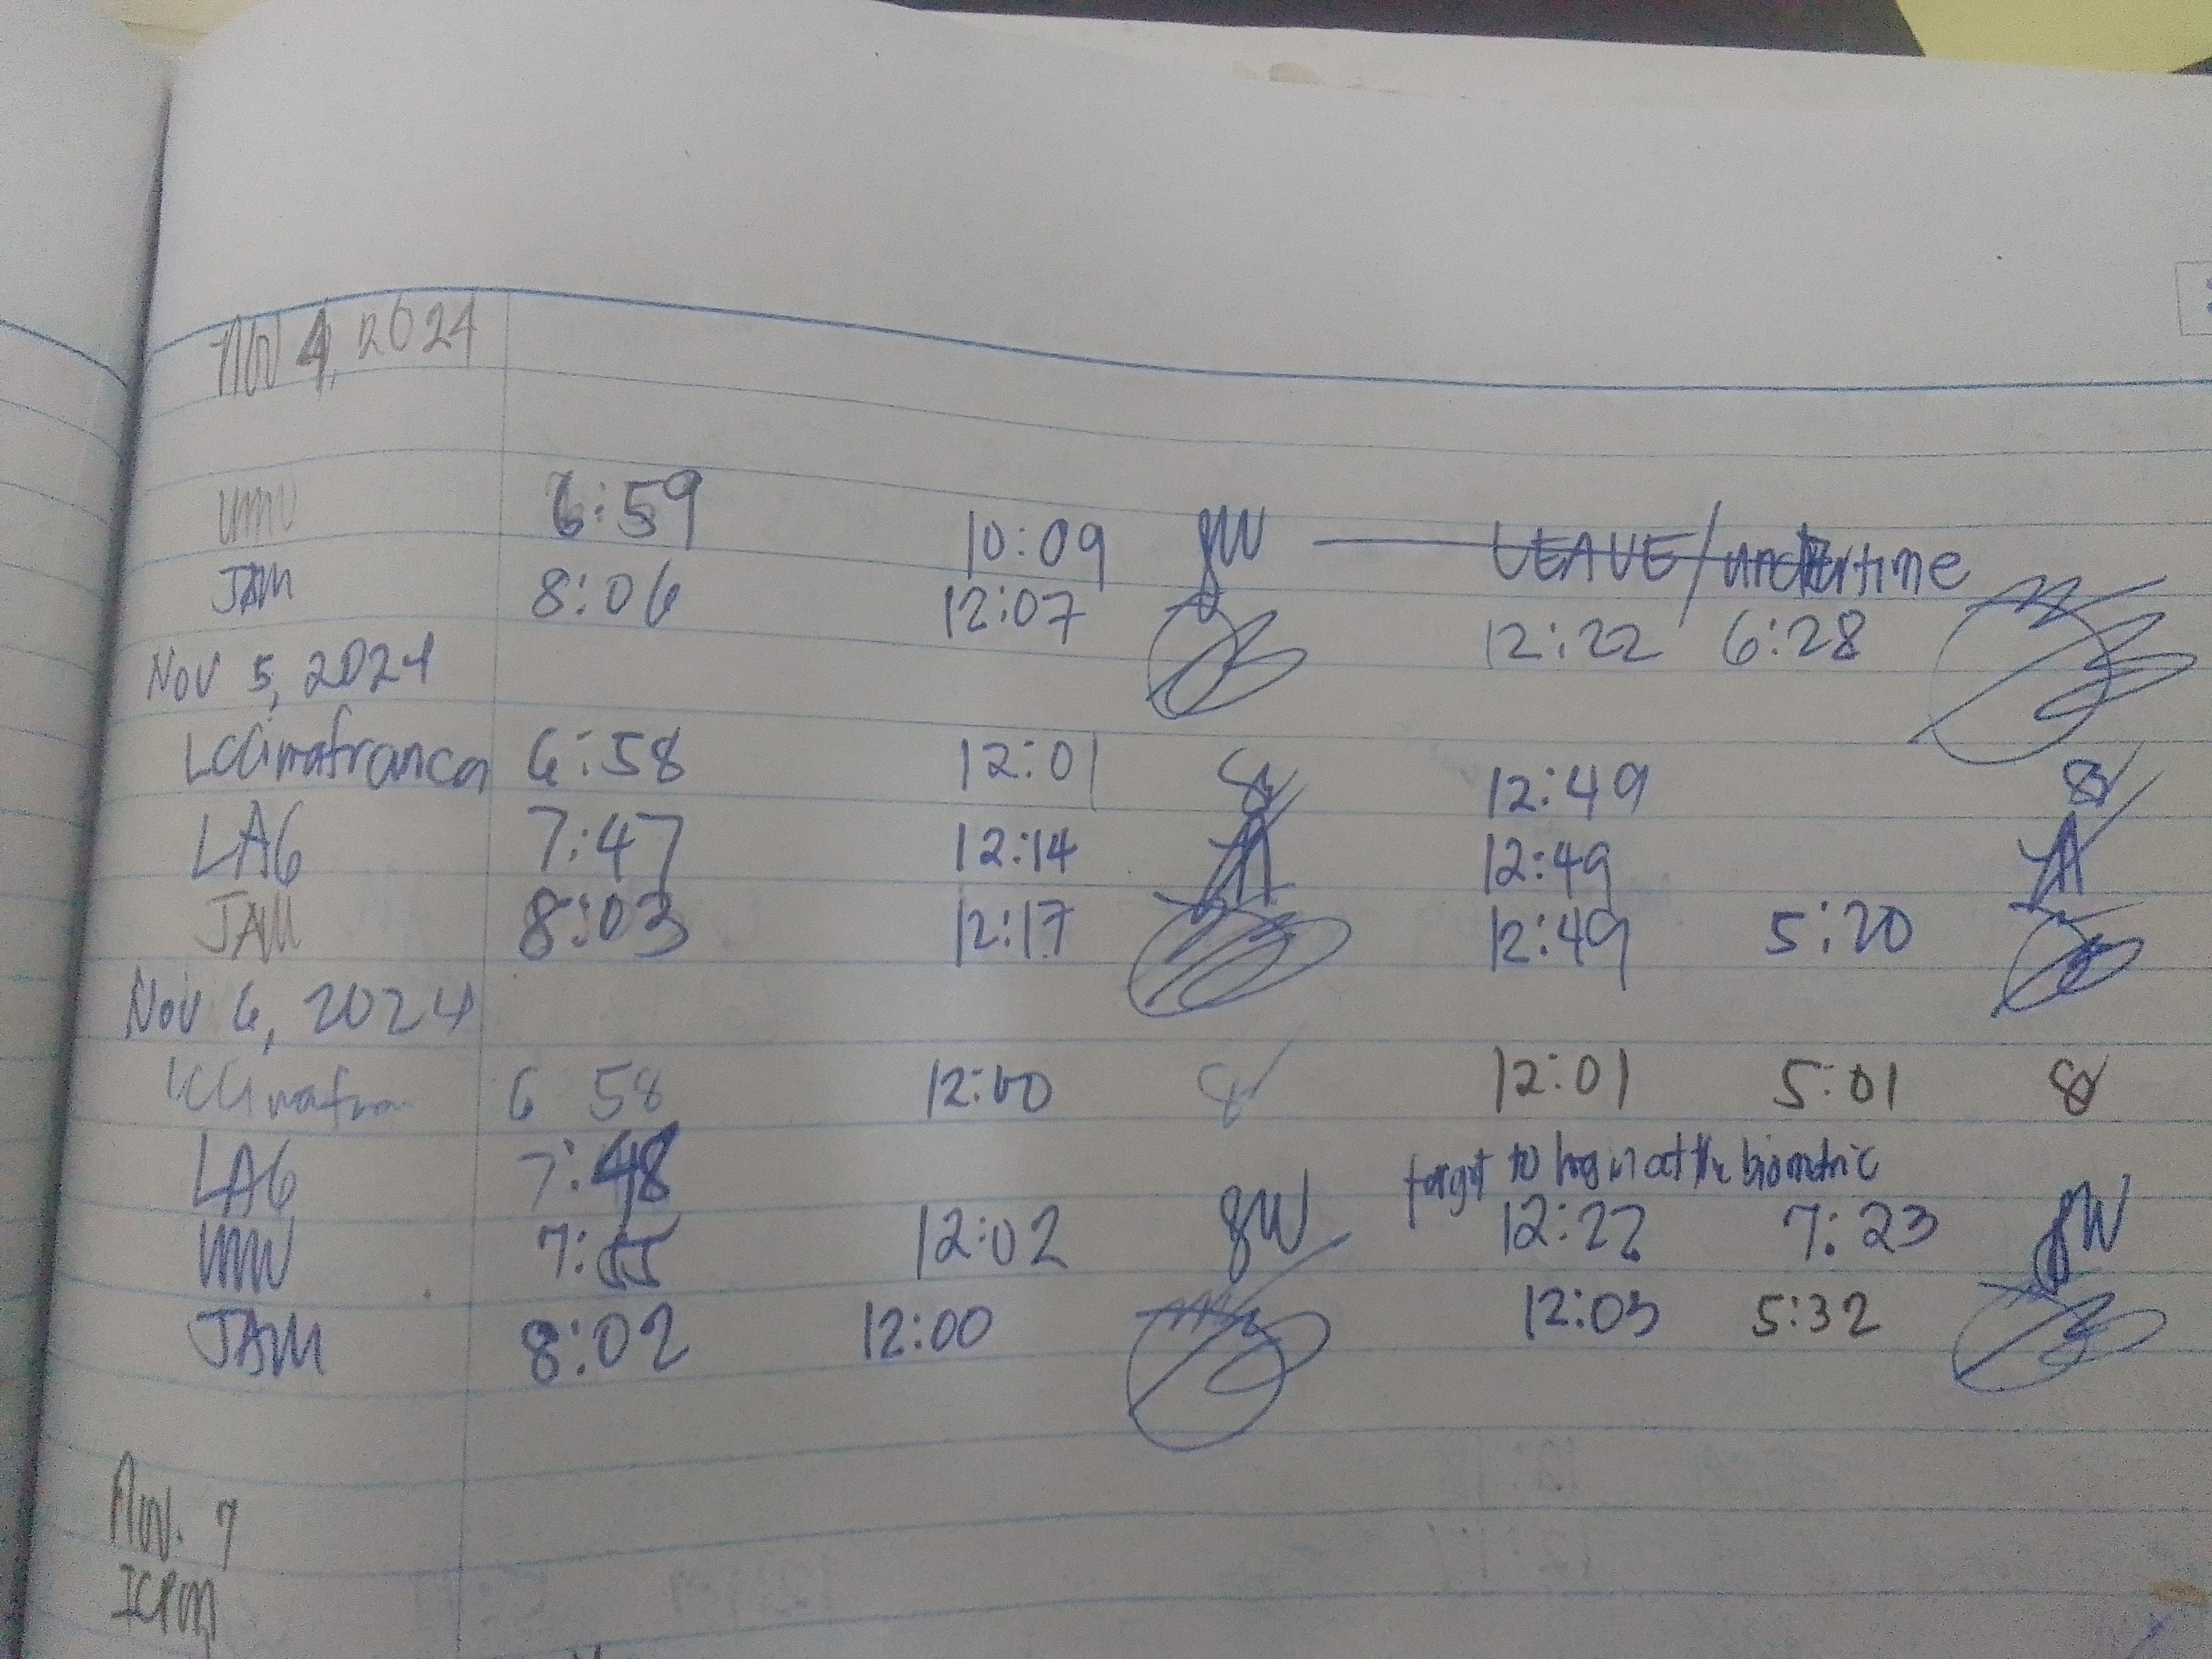 Nov 4, 2024
6:59 10:09 LEAVE/undertime
JAM 8:06 12:07 12:22 6:28
Nov 5, 2024
6:58 12:01 12:49
LAG 7:47 12:14 12:49
JAM 8:03 12:17 12:49 5:20
Nov 6, 2024
6 58 12:00 12:01 5:01
LAG 7:48 forgot to log in at the biometric
7:55 12:02 12:22 7:23
JAM 8:02 12:00 12:03 5:32
Nov. 7